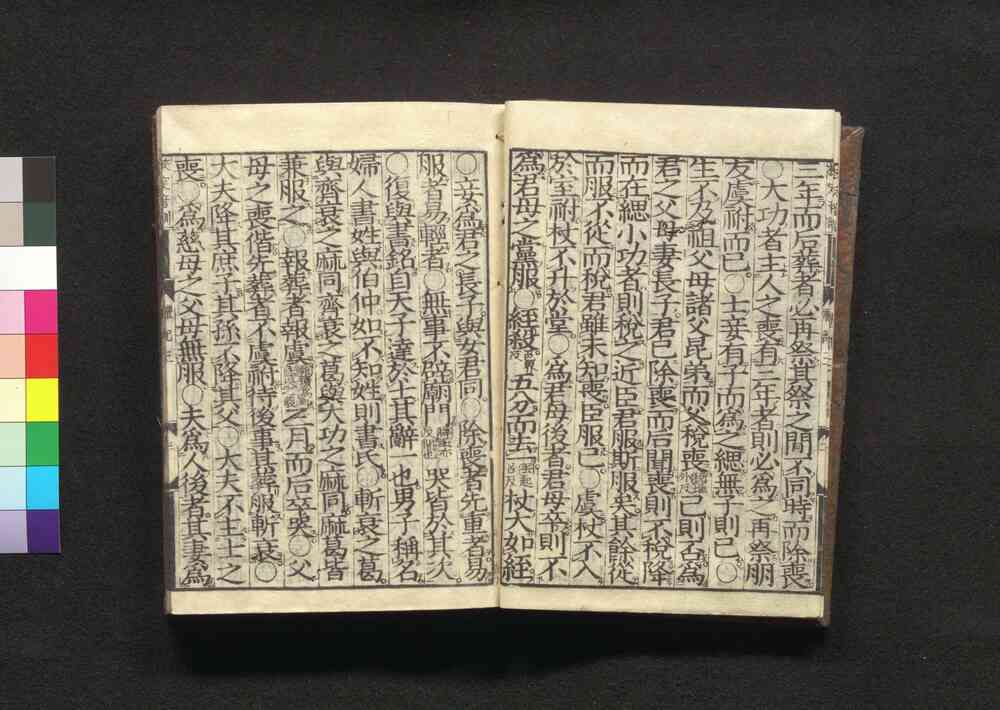 三年而后葬者必再祭其祭之閒不同時而除喪
○大功者主人之喪有三年者則必爲之再祭朋
友虞祔而已○士妾有子而爲之緦無子則已○
生不及祖父母諸父昆弟而父稅喪己則否爲
君之父母妻長子君已除喪而后聞喪則不稅降
而在緦小功者則稅之近臣君服斯服矣其餘從
而服不從而稅君雖未知喪臣服已○虞杖不入
於室祔杖不升於堂○爲君母後者君母卒則不
爲君母之黨服○絰殺五分而去一杖大如絰
○妾爲君之長子與女君同○除喪者先重者易
服者易輕者○無事不辟廟門哭皆於其次
○復與書銘自天子達於士其辭一也男子稱名
婦人書姓與伯仲如不知姓則書氏○斬衰之葛
與齊衰之麻同齊衰之葛與大功之麻同麻葛皆
兼服之○報葬者報虞三月而后卒哭○父
母之喪偕先葬者不虞祔待後事其葬服斬衰○
大夫降其庶子其孫不降其父○大夫不主士之
喪○爲慈母之父母無服○夫爲人後者其妻爲